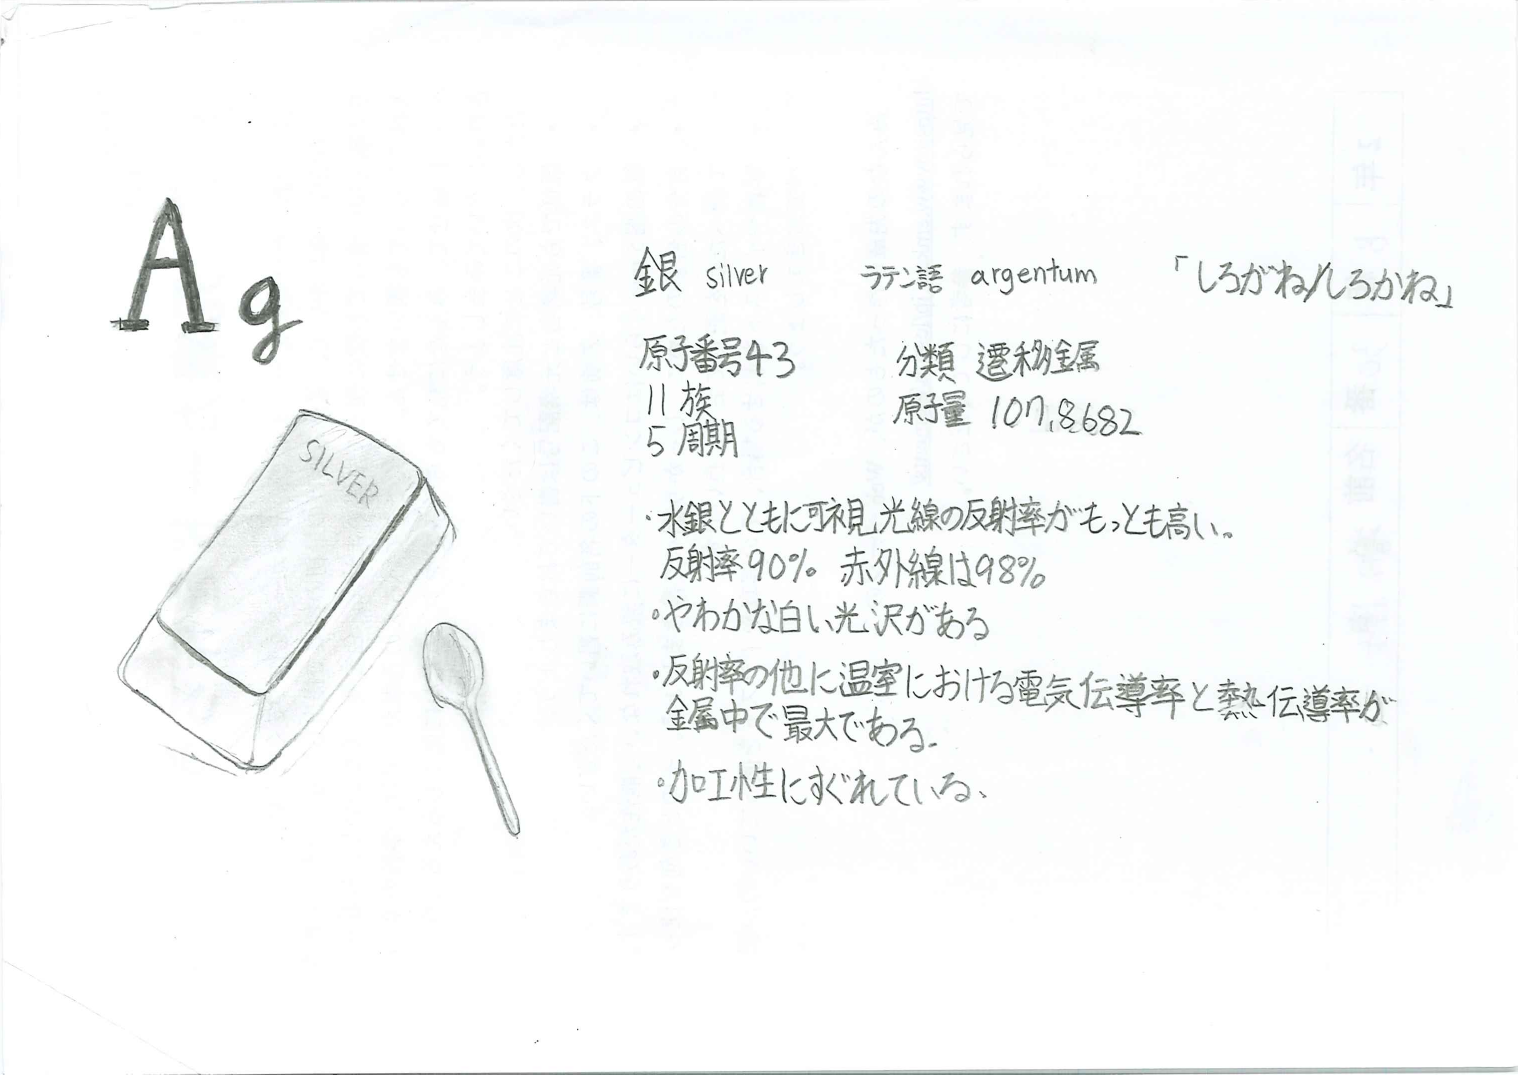 Ag
銀 silver ラテン語 argentum 「しろがね/しろかね」
原子番号43 分類 遷移金属
11族 原子量 107.8682
5周期
SILVER
・水銀とともに可視光線の反射率がもっとも高い。
反射率90% 赤外線は98%
・やわかな白い光沢がある
・反射率の他に温室における電気伝導率と熱伝導率が
金属中で最大である。
・加工性にすぐれている、